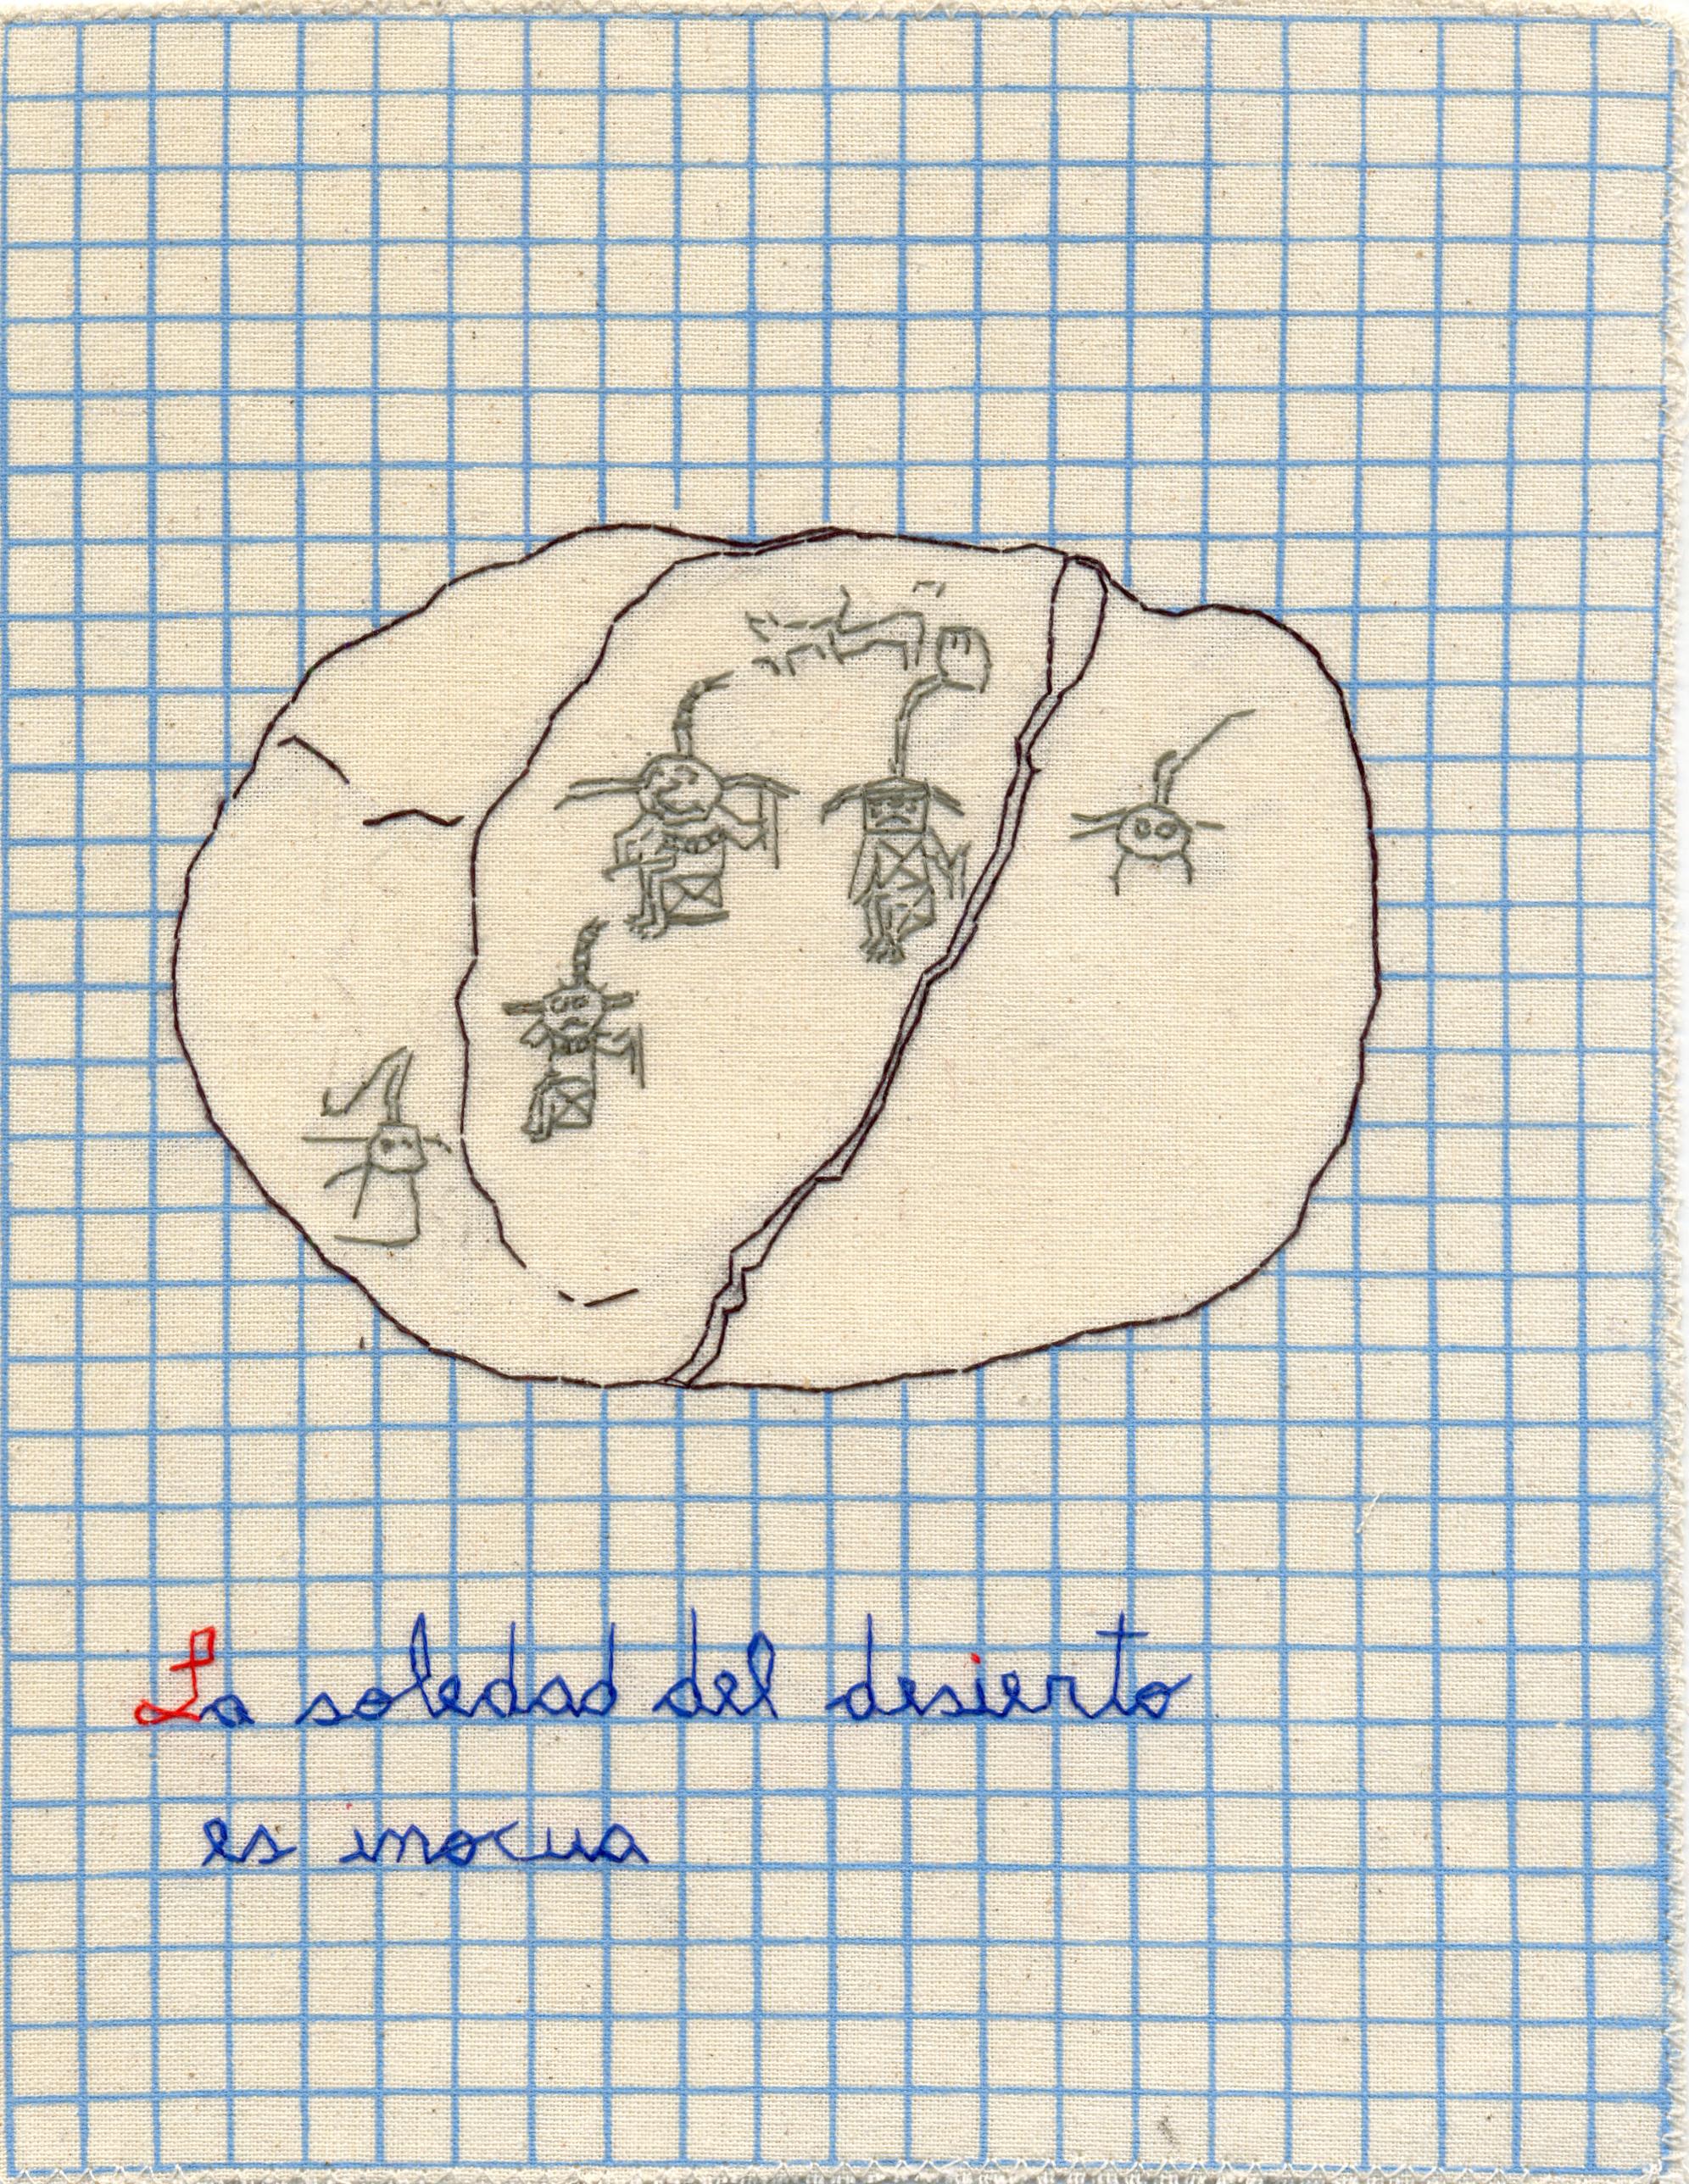 La soledad del desierto
es inocua